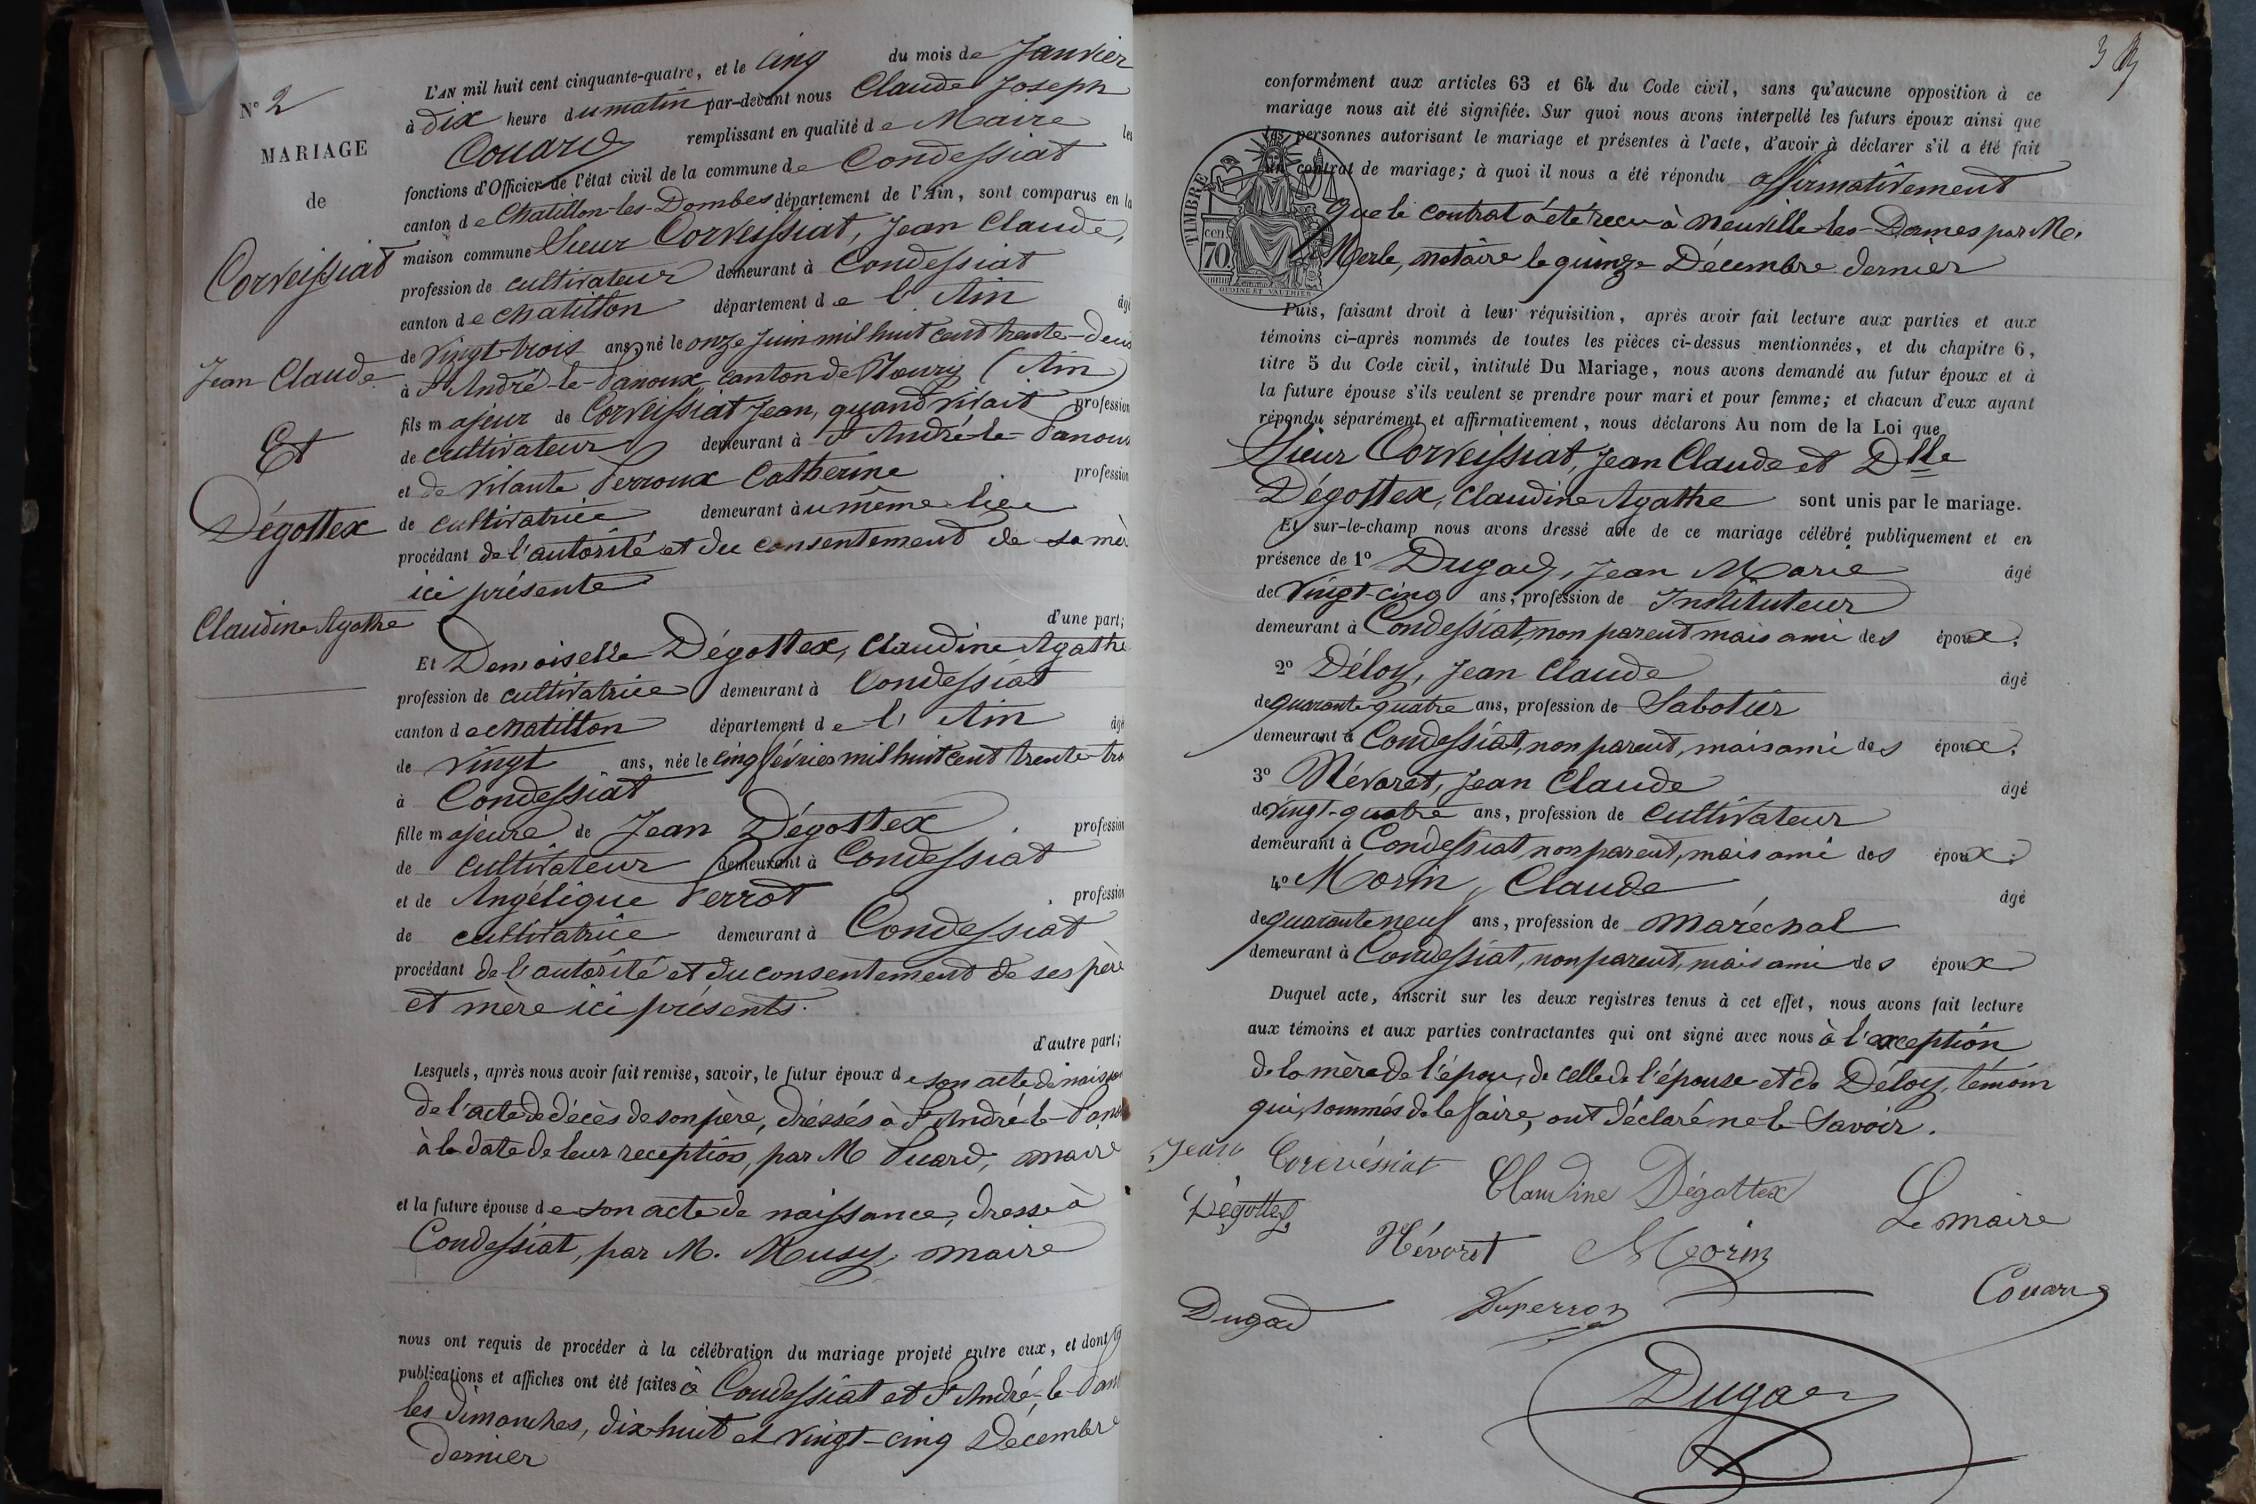 N° 2
MARIAGE
de
Corveissiat
Jean Claude
Et
Dégottex
Claudine Agathe
L'AN mil huit cent cinquante-quatre, et le cinq du mois de Janvier
à dix heure du matin par-devant nous Claude Joseph
Couard remplissant en qualité de Maire les
fonctions d'Officier de l'état civil de la commune de Condessiat
canton de Chatillon-les-Dombes département de l'Ain, sont comparus en la
maison commune Sieur Corveissiat, Jean Claude,
profession de cultivateur demeurant à Condessiat
canton de chatillon département de l'Ain âgé
de vingt-trois ans, né le onze Juin mil huit cent trente-deux
à St André-le-Panoux, canton de (Ain)
fils majeur de Corveissiat Jean, quand vivait profession
de cultivateur demeurant à St André-le-Panoux
et de vivante Perroux Catherine profession
de cultivatrice demeurant au même lieu
procédant de l'autorité et du consentement de sa mère
ici présente
d'une part;
Et Demoiselle Dégottex, Claudine Agathe
profession de cultivatrice demeurant à Condessiat
canton de chatillon département de l'Ain âgé
de vingt ans, née le cinq février mil huit cent trente-tro
à Condessiat
fille majeure de Jean Dégottex profession
de cultivateur demeurant à Condessiat
et de Angélique Perrot profession
de cultivatrice demeurant à Condessiat
procédant de l'autorité et du consentement de ses père
et mère ici présents.
d'autre part;
Lesquels, après nous avoir fait remise, savoir, le futur époux de son acte de naissan
de l'acte de décès de son père, dressés à St André-le-Pano
à la date de leur reception, par M Puard, maire
et la future épouse de son acte de naissance, dressé à
Condessiat, par M. Musy, maire
nous ont requis de procéder à la célébration du mariage projeté entre eux, et dont
publications et affiches ont été faites à Condessiat et St André-le-Pan
les dimanches, dix-huit et vingt-cinq Décembre
dernier
3
conformément aux articles 63 et 64 du Code civil, sans qu'aucune opposition à ce
mariage nous ait été signifiée. Sur quoi nous avons interpellé les futurs époux ainsi que
les personnes autorisant le mariage et présentes à l'acte, d'avoir à déclarer s'il a été fait
un contrat de mariage; à quoi il nous a été répondu affirmativement
que le contrat a été reçu à Neuville-les-Dames par Me.
Merle, notaire le quinze Décembre dernier
TIMBRE
cen.
70.
OUDINE ET VAUTHIER
Puis, faisant droit à leur réquisition, après avoir fait lecture aux parties et aux
témoins ci-après nommés de toutes les pièces ci-dessus mentionnées, et du chapitre 6,
titre 5 du Code civil, intitulé Du Mariage, nous avons demandé au futur époux et à
la future épouse s'ils veulent se prendre pour mari et pour femme; et chacun d'eux ayant
répondu séparément et affirmativement, nous déclarons Au nom de la Loi que
Sieur Corveissiat, Jean Claude et Dlle
Dégottex, Claudine Agathe sont unis par le mariage.
Et sur-le-champ nous avons dressé acte de ce mariage célébré publiquement et en
présence de 1° Dugad, Jean Marie âgé
de vingt-cinq ans, profession de Instituteur
demeurant à Condessiat, non parent mais ami des époux;
2° Déloy, Jean Claude âgé
de quarante quatre ans, profession de Sabotier
demeurant à Condessiat, non parent, mais ami des époux;
3° Névoret, Jean Claude âgé
de vingt-quatre ans, profession de cultivateur
demeurant à Condessiat, non parent, mais ami des époux;
4° Morin, Claude âgé
de quarante neuf ans, profession de maréchal
demeurant à Condessiat, non parent, mais ami des époux
Duquel acte, inscrit sur les deux registres tenus à cet effet, nous avons fait lecture
aux témoins et aux parties contractantes qui ont signé avec nous à l'exception
de la mère de l'époux, de celle de l'épouse et de Déloy, témoin
qui, sommés de le faire, ont déclaré ne le savoir.
Jean Corevéssiat Claudine Dégottex
Dégottex Le maire
Névoret Morin
Dugad Duperron Couard
Dugad